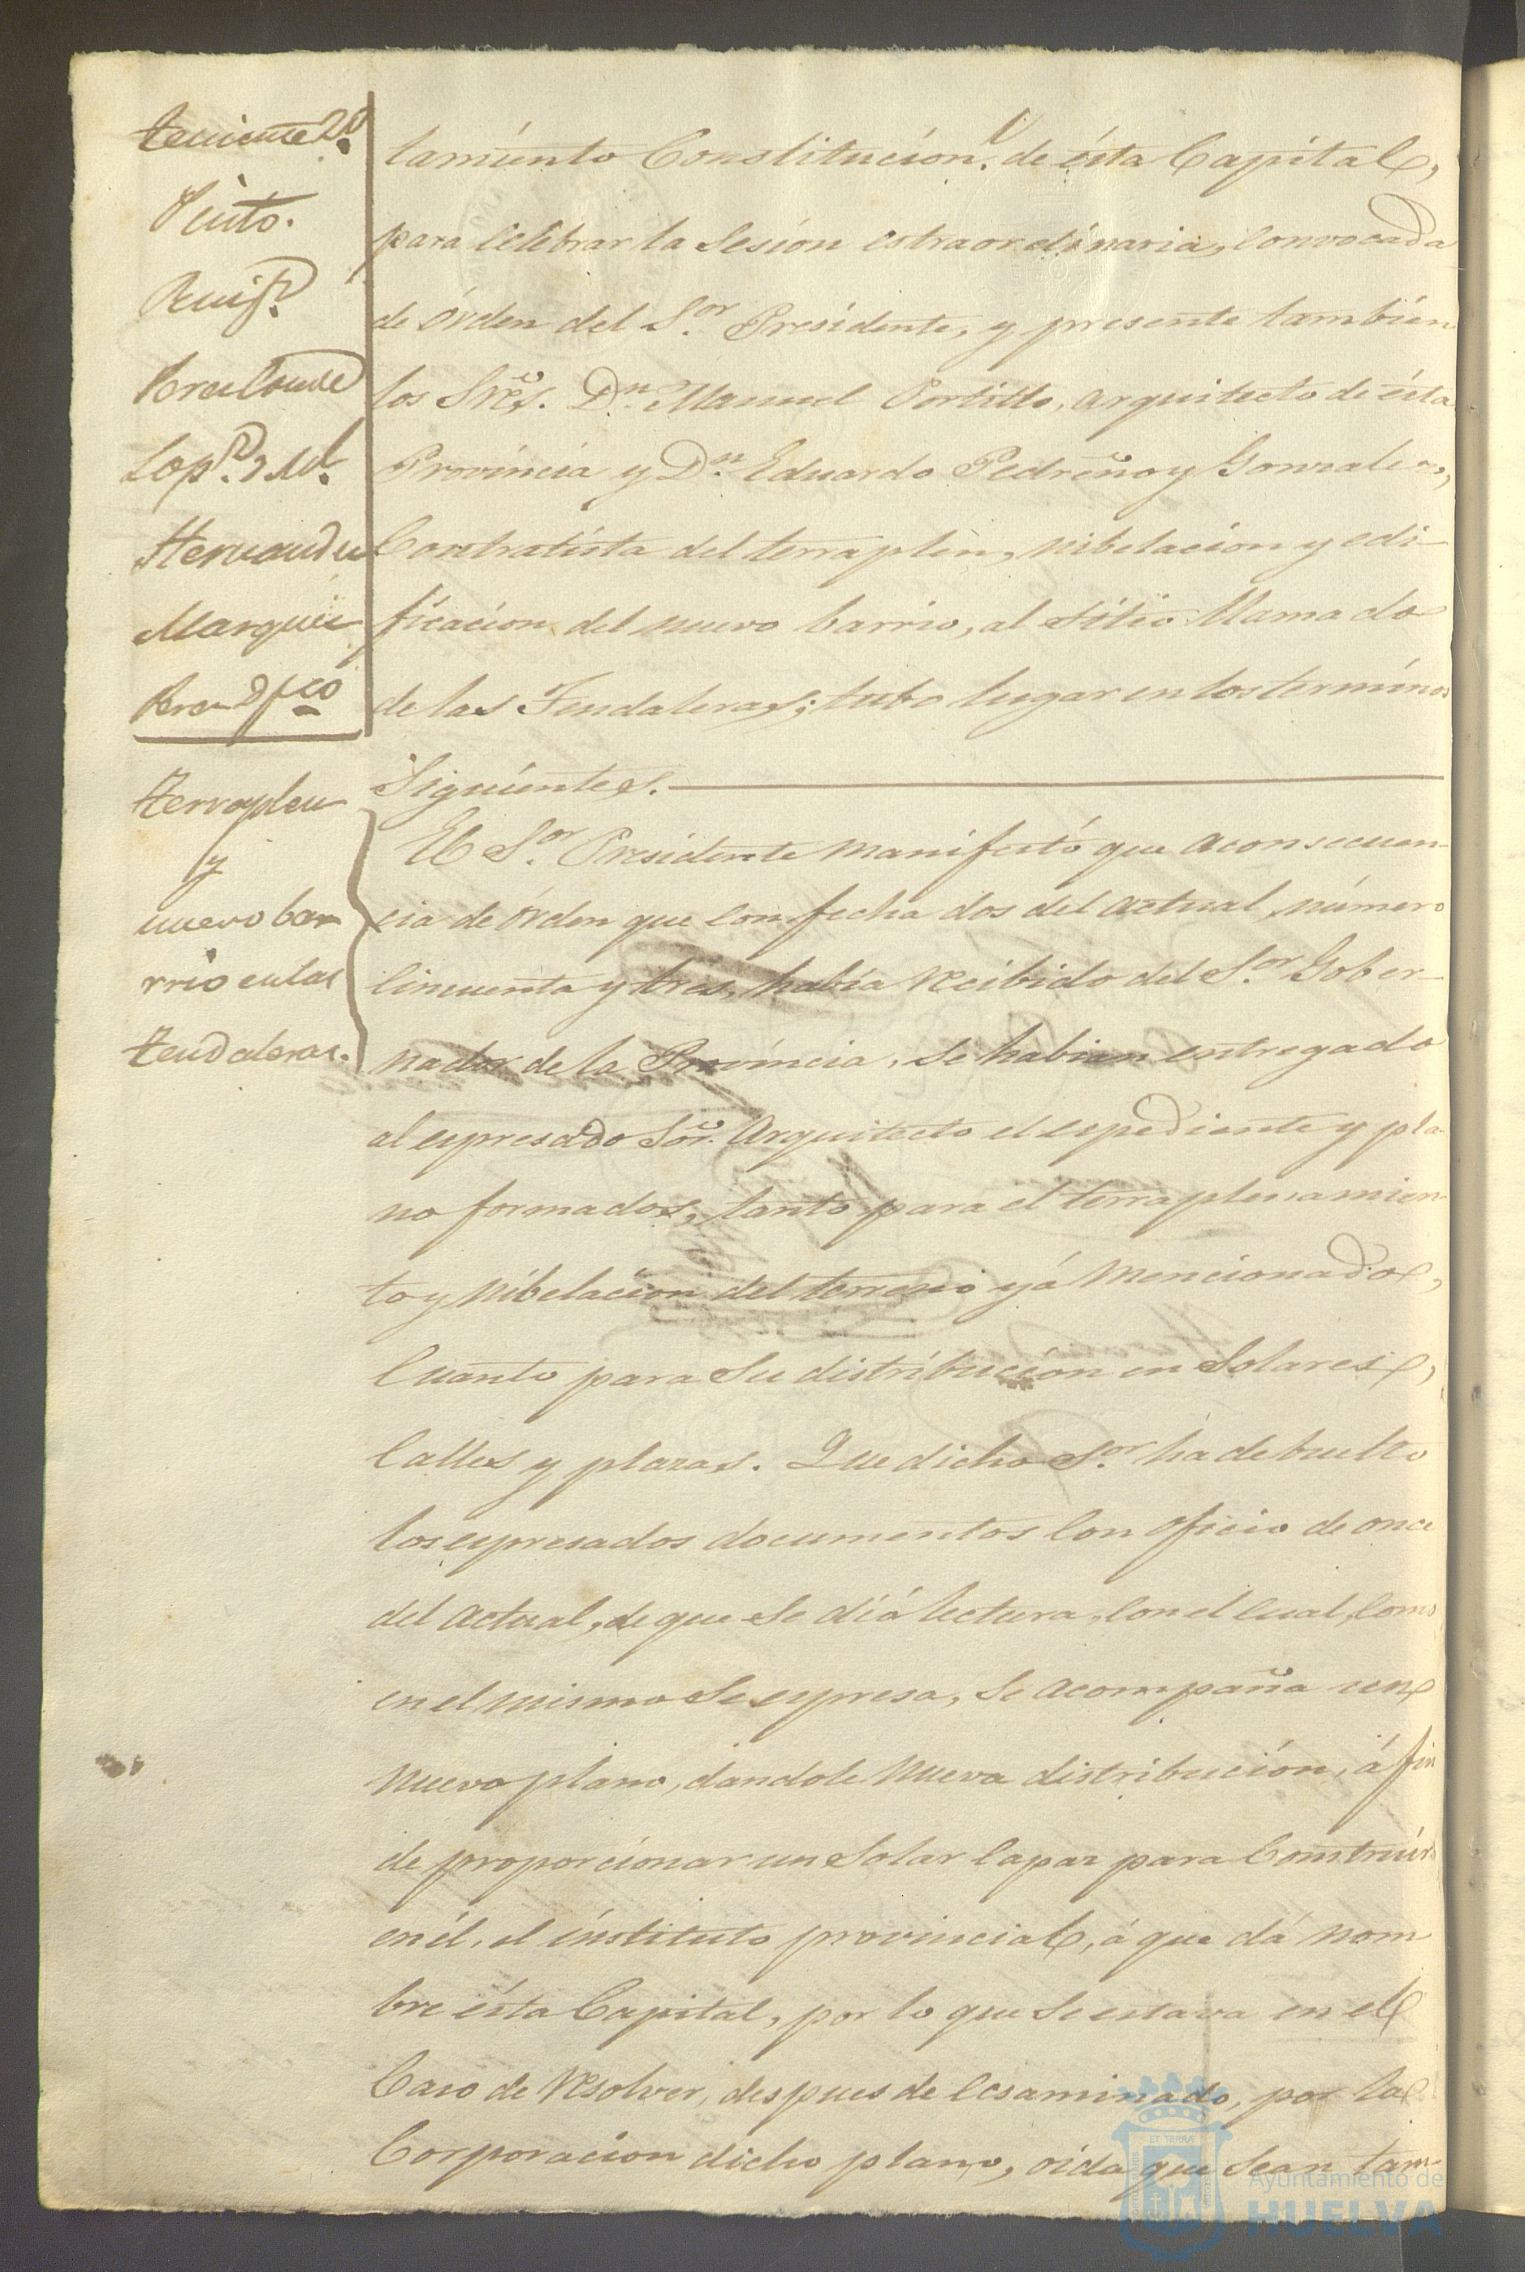 teniente 2º
Pinto.
Ruiz
Lop.
Hernandez
Marquez
fco
Terraplen
y
nuevo bar
rrio en las
tendaleras.
tamiento Constitucion.l de ésta Capital,
para celebrar la Sesion estraordinaria, convocada
de órden del S.or Presidente, y presente tambien
los Sres. D.n Manuel Portillo, arquitecto de ésta
Provincia y D.n Eduardo Pedreño y Gonzalez,
Contratista del terraplen, nibelacion y edi-
ficacion del nuevo barrio, al sitio llamado
de las Tendaleras; tubo lugar en los términos
Siguientes.
El S.or Presidente manifestó que a consecuen-
cia de órden que con fecha dos del actual, número
cincuenta y tres, habia recibido del S.or Gober-
nador de la Provincia, se habian entregado
al espresado Sor. Arquitecto el espediente y pla-
no formados, tanto para el terraplenamien-
to y nibelacion del terreno yá mencionado,
cuanto para su distribucion en Solares,
Calles y plazas. Que dicho S.or há debuelto
los espresados documentos con oficio de once
del actual, de que se dió lectura, con el cual, como
en el mismo se espresa, se acompaña un
nuevo plano, dandole nueva distribucion, á fin
de proporcionar un Solar capaz para Construir
en él, el instituto provincial, á que dá nom
bre ésta Capital, por lo que se estava en el
Caso de resolver, despues de ecsaminado, por la
Corporacion dicho plano, oida que sean tam-
ET TERRÆ
Ayuntamiento de
HUELVA